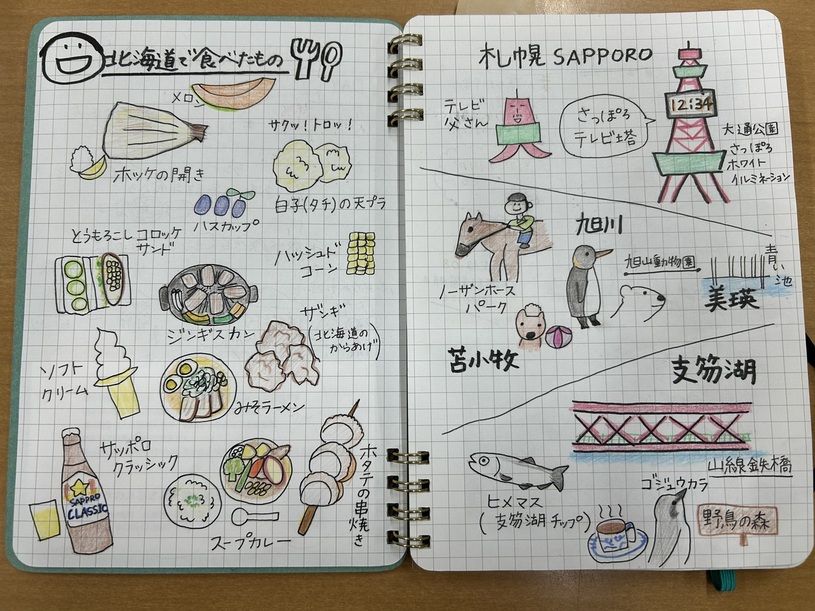 北海道で食べたもの
メロン
ホッケの開き
サクッ!トロッ!
白子(タチ)の天プラ
ハスカップ
とうもろこし コロッケ
サンド
ハッシュド
コーン
ジンギスカン
ザンギ
(北海道の
からあげ)
ソフト
クリーム
みそラーメン
サッポロ
クラッシック
SAPPORO
CLASSIC
スープカレー
ホタテの串焼き
札幌 SAPPORO
テレビ
父さん
さっぽろ
テレビ塔
12:34
大通公園
さっぽろ
ホワイト
イルミネーション
ノーザンホース
パーク
苫小牧
旭川
旭山動物園
青い池
美瑛
支笏湖
山線鉄橋
ヒメマス
(支笏湖チップ)
ゴジュウカラ
野鳥の森